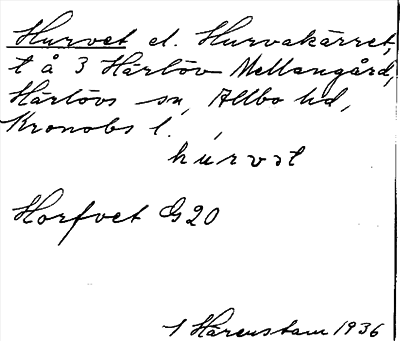 Hurvet el. Hurvakärret,
t å 3 Härlöv Mellangård,
Härlövs sn, Allbo hd,
Kronobs l.
húrvət
Horfvet G20
1 Härenstam 1936